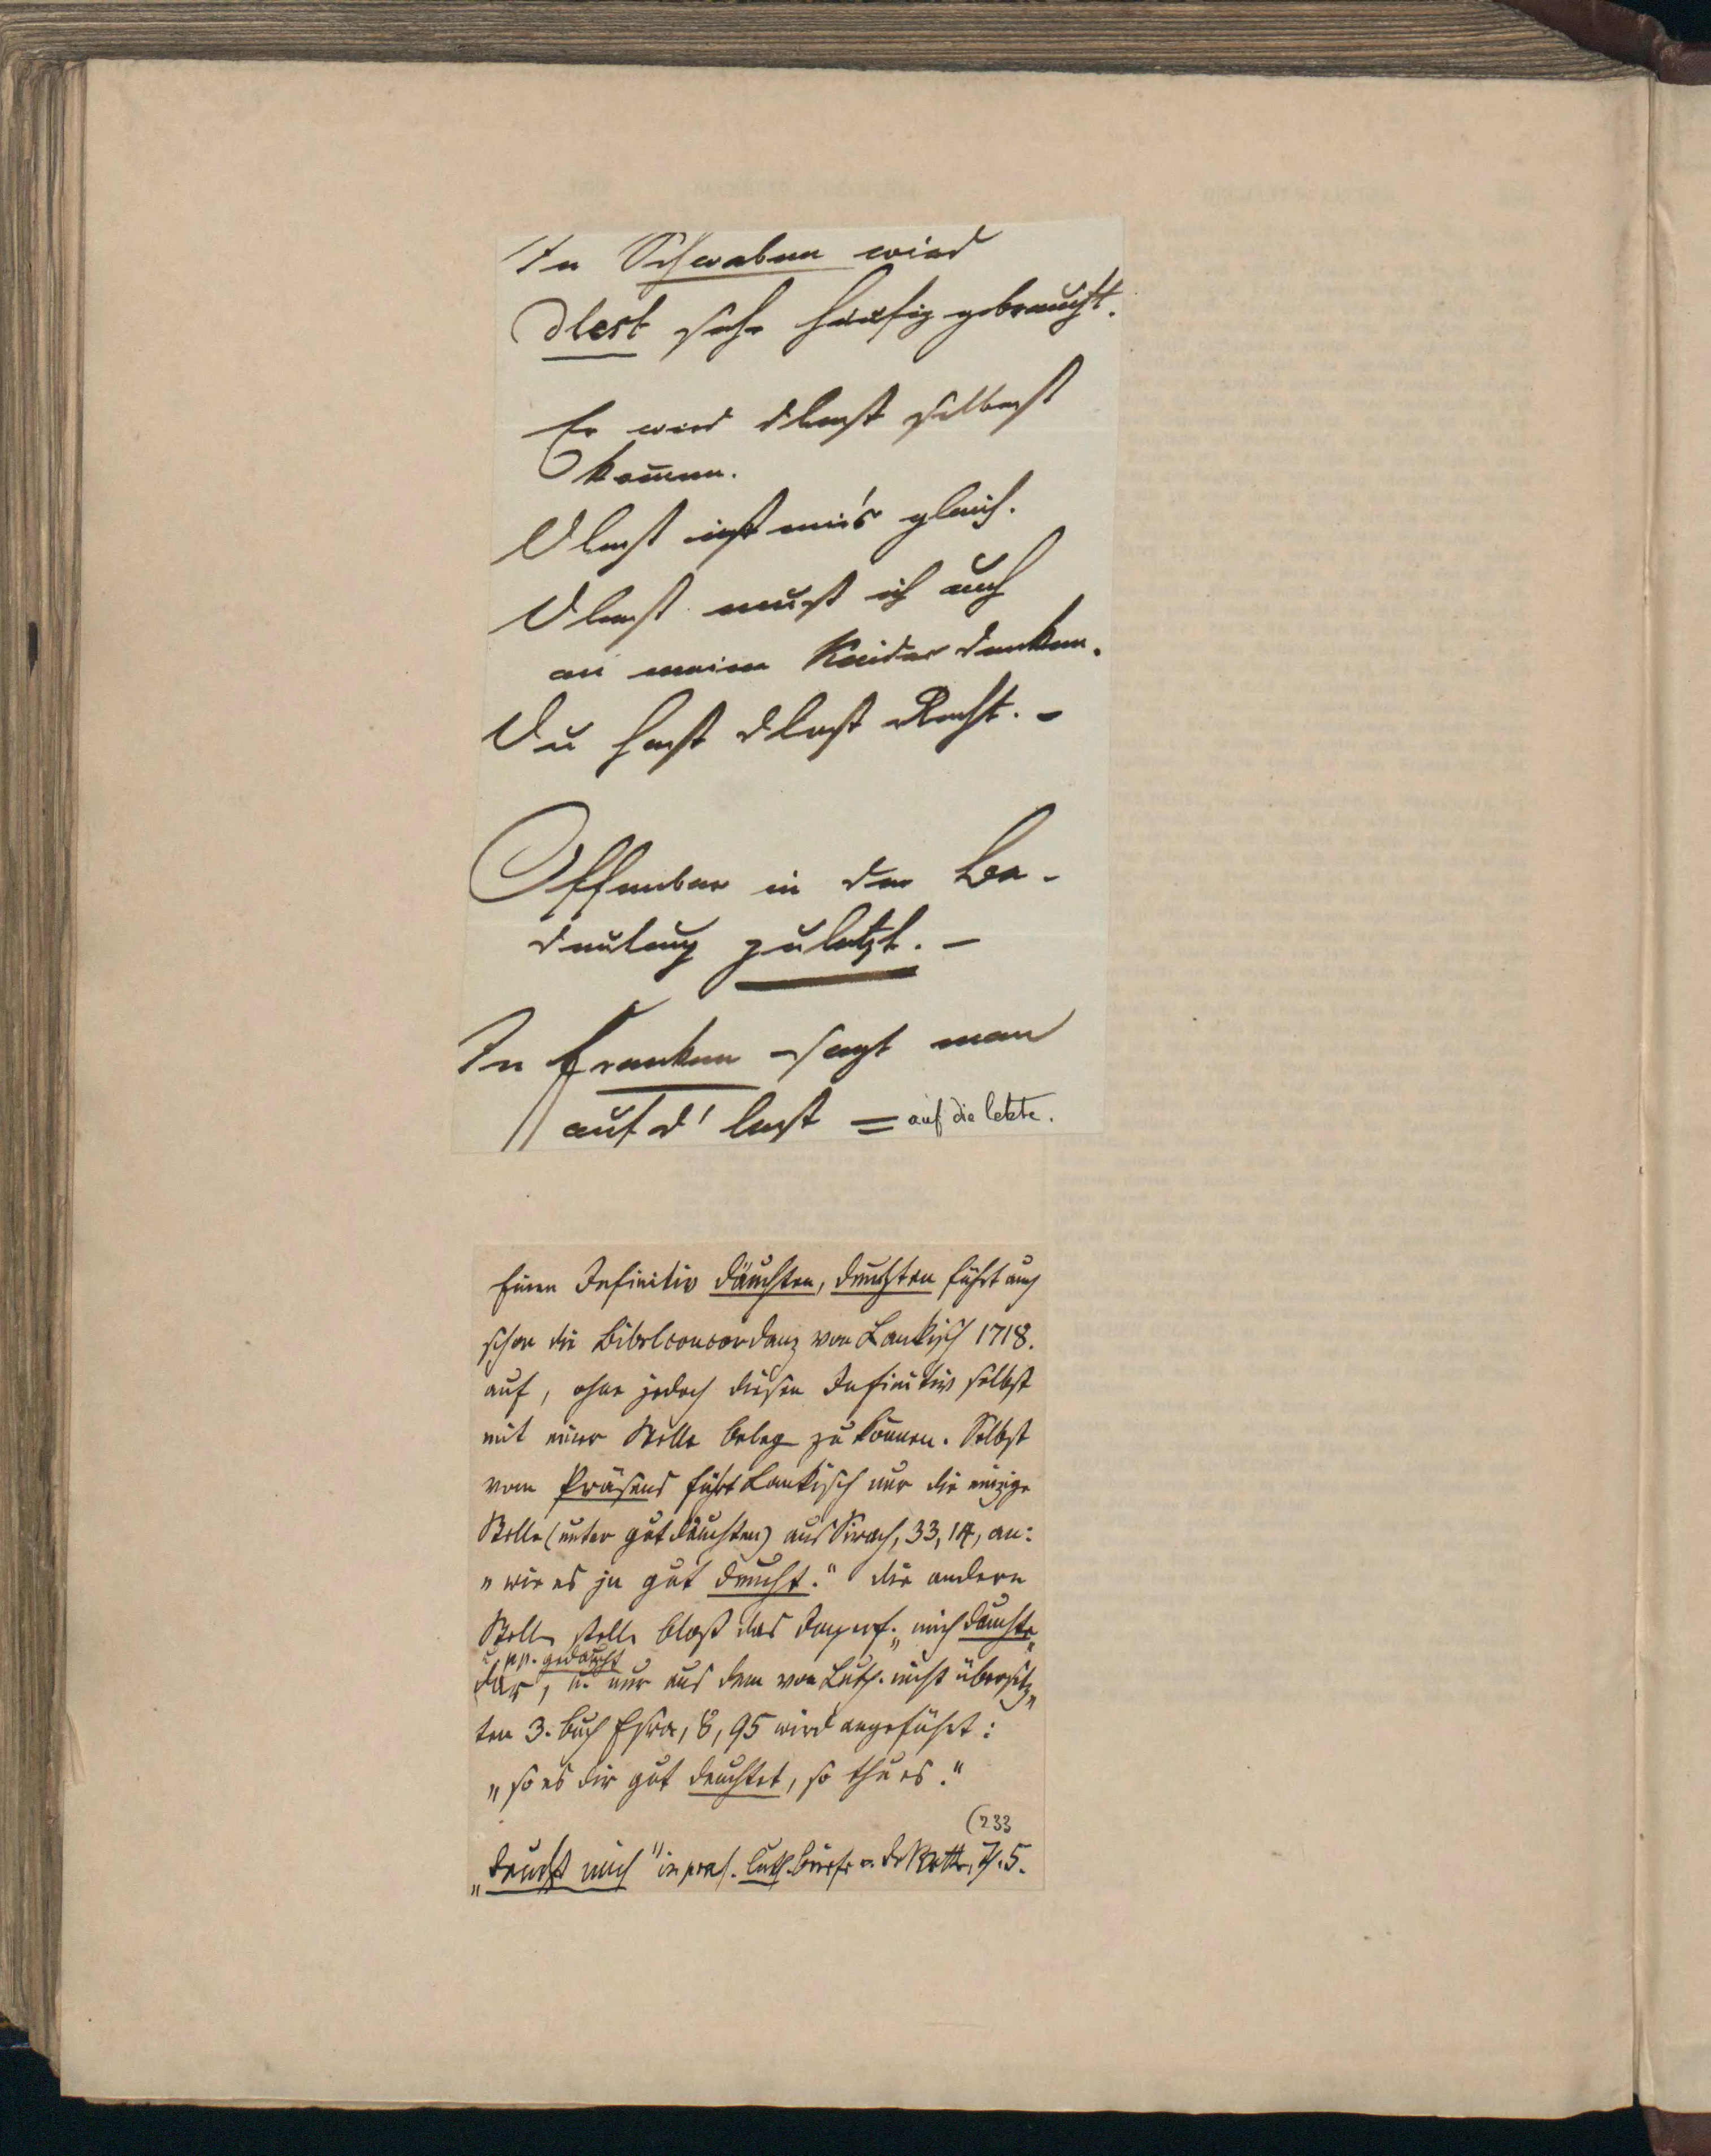 In Schwaben wird
dlest sehr häufig gebraucht.
Er wird dlest selbest
kom̄en.
Dlest ist mir's gleich.
Dlest must ich auch
an meine Kinder denken.
Du hast dlest Recht. –
Offenbar in der Be-
deutung zuletzt. –
In Franken sagt man
auf d' lest = auf die letzte.
Einen Infinitiv däuchten, deuchten führt auch
schon die Bibelconcordanz von Lankisch 1718.
auf, ohne jedoch diesen Infinitiv selbst
mit einer Stelle beleg zu können. Selbst
vom Präsens führt Lankisch nur die einzige
Stelle (unter gut däuchten) aus Sirach, 33, 14, an:
„wie es jn gut deucht." die andern
Stelln stelle bloß das Imperf. „mich däuchte"
u. pp. gedäucht
dar, u. nur aus dem von Luth. nicht übersetz-
ten 3. Buch Esra, 8, 95 wird angeführt:
„so es dir gut deuchtet, so thu es."
(233
„deucht mich" in praes. Luth. Briefe v. de Wette, 5.